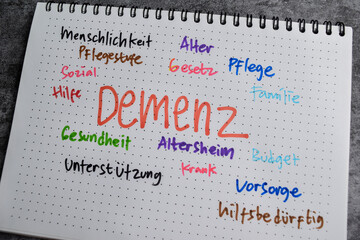 Menschlichkeit
Alter
Pflegestufe
Sozial
Gesetz
Pflege
Hilfe
Familie
Demenz
Gesundheit
Altersheim
Budget
Unterstützung
Krank
Vorsorge
hilfsbedürftig